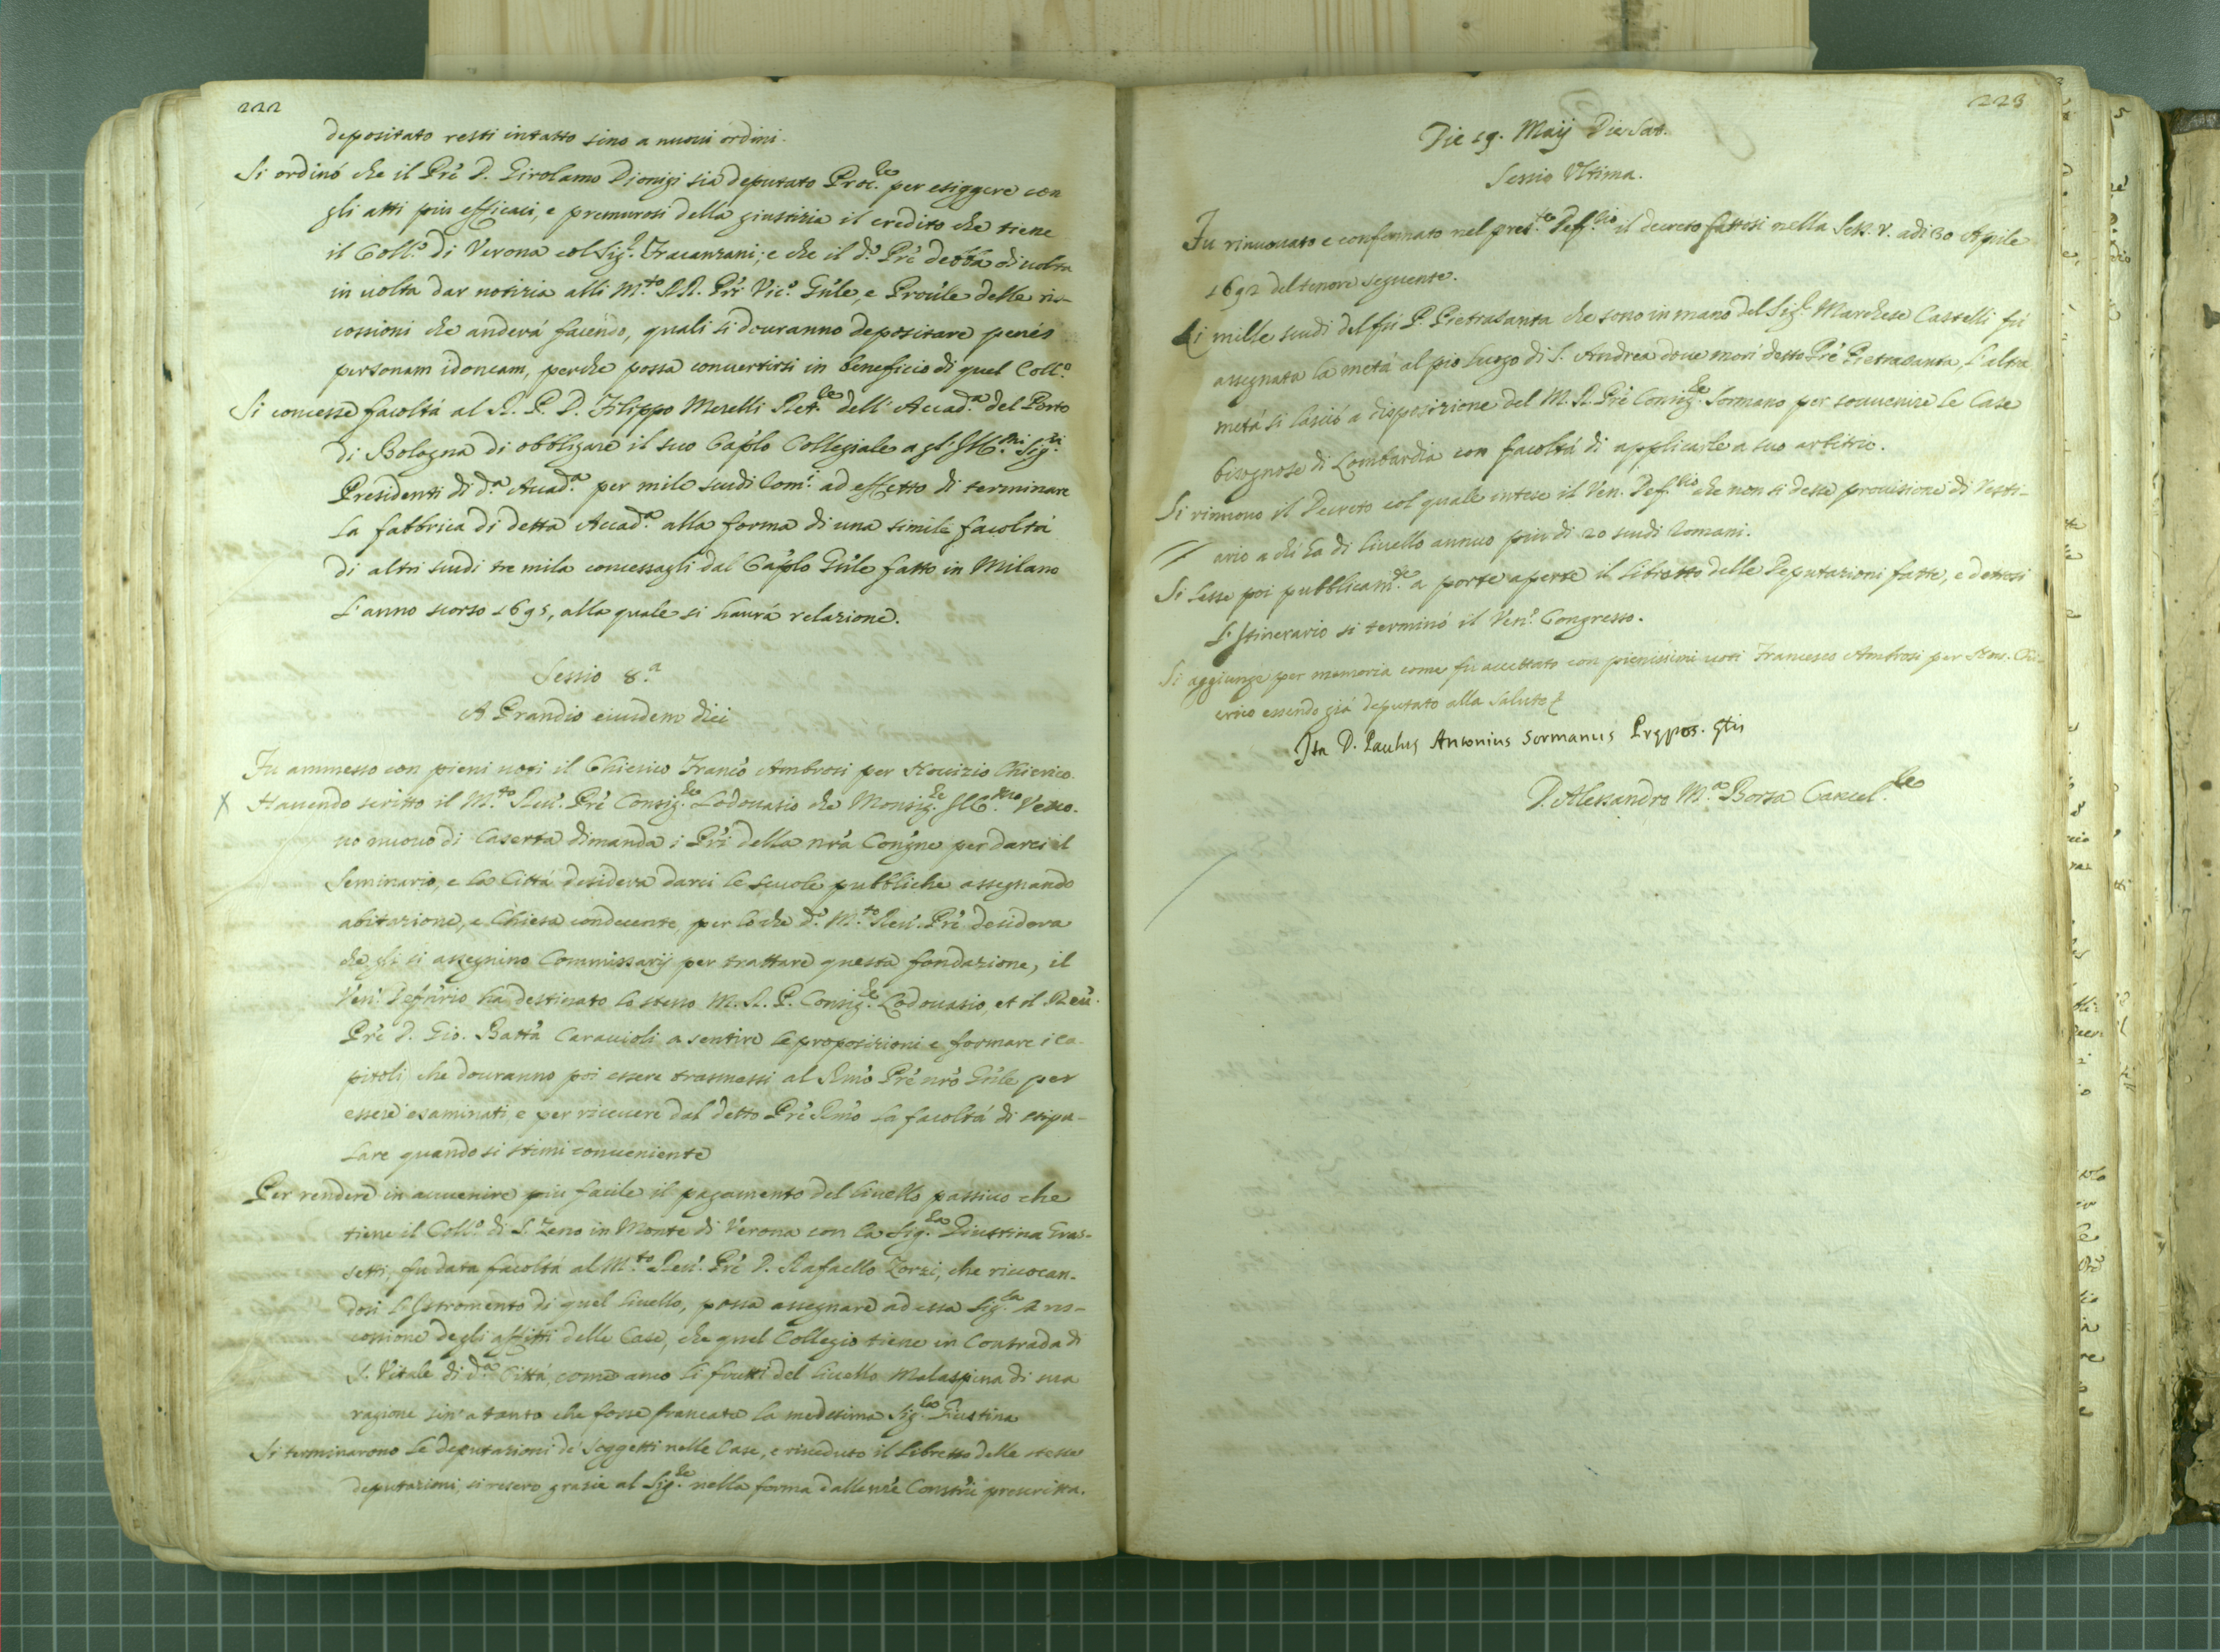 222
depositato resti intatto sino a nuovi ordini.
Si ordinó che il Prê D. Girolamo Dionigi sia deputato Proc.re per esiggere con
gli atti piu efficaci, e premurosi della giustizia il credito che tiene
il Coll.o di Verona col Sig.r Fracanzani; e che il d.o Prê debba di volta
in volta dar notizia alli M.to RR. Prí Vic.o Gñle, e Proúle delle ris-
cossioni che anderá facendo, quali si douranno depositare penés
personam idoneam, perche possa convertirsi in beneficio di quel Coll.o
Si concesse facoltá al R. P. D. Filippo Merelli Ret.re dell' Accad.a del Porto
di Bologna di obbligare il suo Cap̃lo Collegiale a gl' Ill.mi Sig.ri
Presidenti di d.a Accad.a per mile scudi Rom.i ad effetto di terminare
la fabbrica di detta Accad.a alla forma di una simile facoltá
di altri scudi tre mila concessagli dal Cap̃lo Gñle fatto in Milano
l'anno scorso 1695, alla quale si haurá relazione.
Sessio 8.a
A Prandio eiusdem diei
Fu ammesso con pieni voti il Chierico Franc̃o Ambrosi per Novizio Chierico.
X Havendo scritto il M.to Reu. Prê Consig.re Lodouasio che Monsig.re Ill.mo Vesco-
uo nuouo di Caserta dimanda i Prí della nrã Congñe per darci il
Seminario, e la Cittá desidera darci le scuole pubbliche assegnando
abitazione, e Chiesa condecente, per lo che d.o M.to Reu. Prê desidera
che gli si assegnino Commissarij per trattare questa fondazione, il
Ven. Defñrio ha destinato lo stesso M. R. P. Consig.re Lodouasio, et il Reu.
Prê D. Gio. Batta Caravioli a sentire le proposizioni e formare i ca-
pitoli che douranno poi essere trasmessi al Rmõ Prê nrõ Gñle per
essere esaminati, e per riceuere dal detto Prê Rmõ la facoltá di stipu-
lare quando si stimi conueniente
Per rendere in auuenire piu facile il pagamento del liuello passiuo che
tiene il Coll.o di S. Zeno in Monte di Verona con la Sig.ra Giustina Gras-
setti, fu data facoltá al M.to Reu. Prê D. Rafaello Zorzi, che riuocan-
dosi l'Istromento di quel liuello, possa assegnare ad essa Sig.ra la ris-
cossione degli affitti delle Case, che quel Collegio tiene in Contrada di
S. Vitale di d.a Cittá, come anco li frutti del liuello Malaspina di sua
ragione sin' a tanto che fosse francata la medesima Sig.ra Giustina
Si terminarono le deputazioni de soggetti nelle Case, e riueduto il Libretto delle stesse
deputazioni, si resero grazie al Sig.re nella forma dalle nrê Constñi prescritta.
223
Die 19. Maij Die Sat.
Sessio Vltima.
Fu rinuouato e confermato nel pres.te Def.rio il decreto fattosi nella Sess. V. adi 30 Aprile
1692 del tenore seguente.
Li mille scudi del fú P. Pietrasanta che sono in mano del Sig.r Marchese Castelli fú
assegnata la metá al pio luogo di S. Andrea doue morí detto Prê Pietrasanta, l'altra
metá si lasció a disposizione del M. R. Prê Consig.re Sormano per souuenire le Case
bisognose di Lombardia con facoltá di applicarle a suo arbitrio.
Si rinnouo il Decreto col quale intese il Ven. Def.rio che non si desse prouisione di Vesti-
ario a chi ha di liuello annuo piu di 20 scudi Romani.
Si lesse poi pubblicam.te a porte aperte il libretto delle Deputazioni fatte, e dettosi
l'Itinerario si terminó il Ven. Congresso.
Si aggiunge per memoria come fu accettato con pienissimi voti Francesco Ambrosi per Nov. Chi-
erico essendo giá deputato alla Salute
Ita D. Paulus Antonius Sormanus Prępos. Gñlis
D. Alessandro M.a Borsa Cancel.re